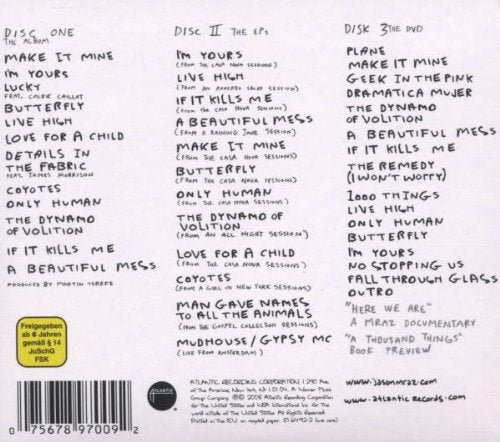 DISC ONE
THE ALBUM
MAKE IT MINE
I'M YOURS
LUCKY
FEAT. COLBIE CAILLAT
BUTTERFLY
LIVE HIGH
LOVE FOR A CHILD
DETAILS IN
THE FABRIC
FEAT. JAMES MORRISON
COYOTES
ONLY HUMAN
THE DYNAMO
OF VOLITION
IF IT KILLS ME
A BEAUTIFUL MESS
PRODUCED BY MARTIN TEREFE
Freigegeben
ab 6 Jahren
gemäß § 14
JuSchG
FSK
0 75678 97009 2
DISC II THE EPs
I'M YOURS
(FROM THE CASA NOVA SESSIONS)
LIVE HIGH
(FROM AN AVOCADO SALAD SESSION)
IF IT KILLS ME
(FROM THE CASA NOVA SESSIONS)
A BEAUTIFUL MESS
(FROM A RAINING JANE SESSION)
MAKE IT MINE
(FROM THE CASA NOVA SESSIONS)
BUTTERFLY
(FROM THE CASA NOVA SESSIONS)
ONLY HUMAN
(FROM THE CASA NOVA SESSIONS)
THE DYNAMO OF
VOLITION
(FROM AN ALL NIGHT SESSION)
LOVE FOR A CHILD
(FROM THE CASA NOVA SESSIONS)
COYOTES
(FROM A GIRL IN NEW YORK SESSIONS)
MAN GAVE NAMES
TO ALL THE ANIMALS
(FROM THE GOSPEL COLLECTION SESSIONS)
MUDHOUSE/GYPSY MC
(LIVE FROM AMSTERDAM)
DISK 3 THE DVD
PLANE
MAKE IT MINE
GEEK IN THE PINK
DRAMATICA MUJER
THE DYNAMO
OF VOLITION
A BEAUTIFUL MESS
IF IT KILLS ME
THE REMEDY
(I WON'T WORRY)
1000 THINGS
LIVE HIGH
ONLY HUMAN
BUTTERFLY
I'M YOURS
NO STOPPING US
FALL THROUGH GLASS
OUTRO
"HERE WE ARE"
A MRAZ DOCUMENTARY
"A THOUSAND THINGS"
BOOK PREVIEW
www.jasonmraz.com
www.atlantic Records.com
ATLANTIC
ATLANTIC RECORDING CORPORATION, 1290 AVE
of The Americas, New York, N.Y. 10104. A Warner Music
Group Company. ℗© 2008 Atlantic Recording Corporation
for The United States and WEA International Inc. for the
world outside of The United States. All Rights Reserved.
Printed in The E.U. on recycled paper.